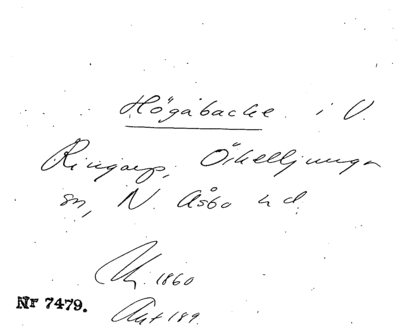 Högabacke i V.
Ringarp, Örkelljunga
sn, N. Åsbo hd.
1860
Nr 7479.
Akt 189.